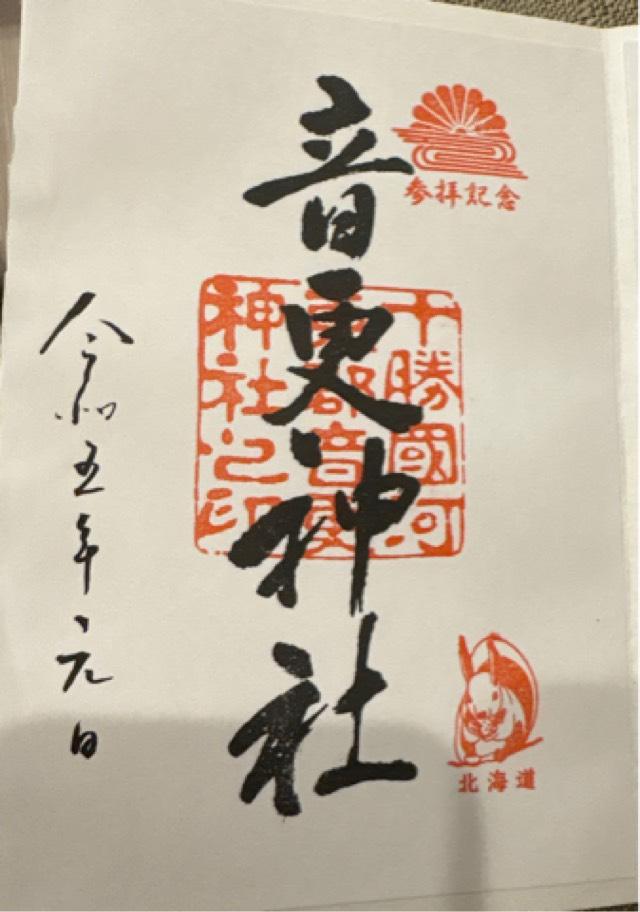 参拝記念
音更神社
十勝國河
東郡音更
神社之印
北海道
令和五年元日